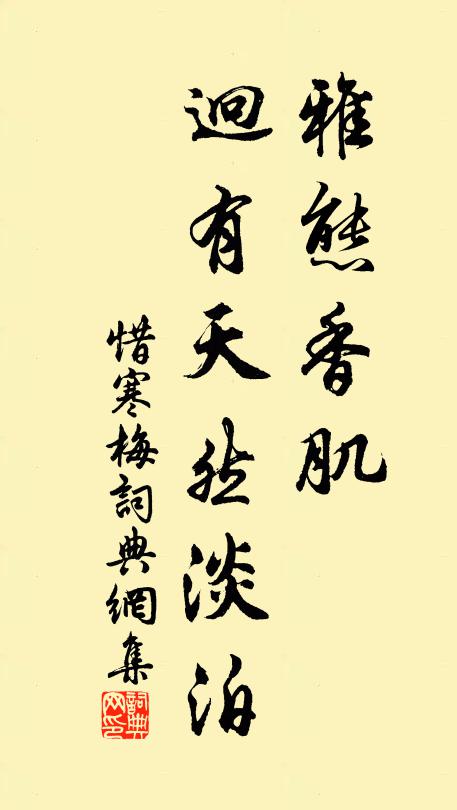 雅態香肌
迥有天然淡泊
惜寒梅詞典網集
詞典网印